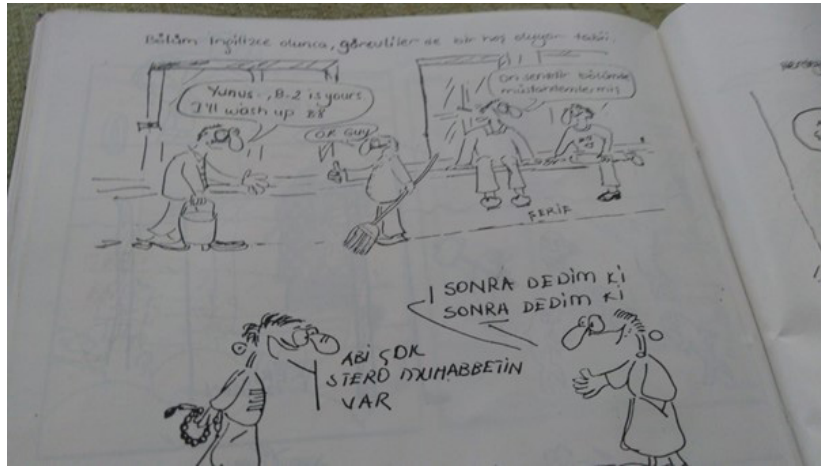 Bölüm ingilizce olunca, görevliler de bir hoş oluyor tabii.
Yunus, B-2 is yours.
I'll wash up B8
O.K Guy
On senedir bölümde
müstahdemlermiş
FERİF
SONRA DEDİM Kİ
SONRA DEDİM Kİ
ABİ ÇOK
STERO MUHABBETİN
VAR